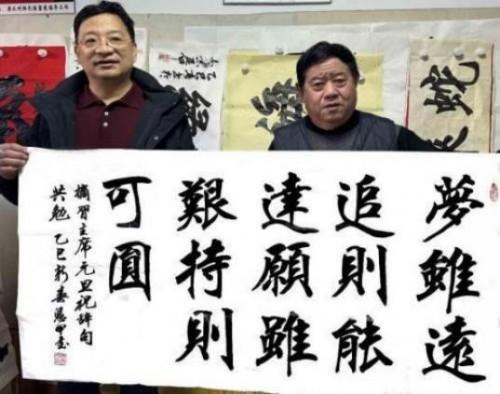 夢雖遠
追則能
達願雖
艱持則
可圓
摘習主席元旦祝辞句
共勉 乙巳新春
蛇